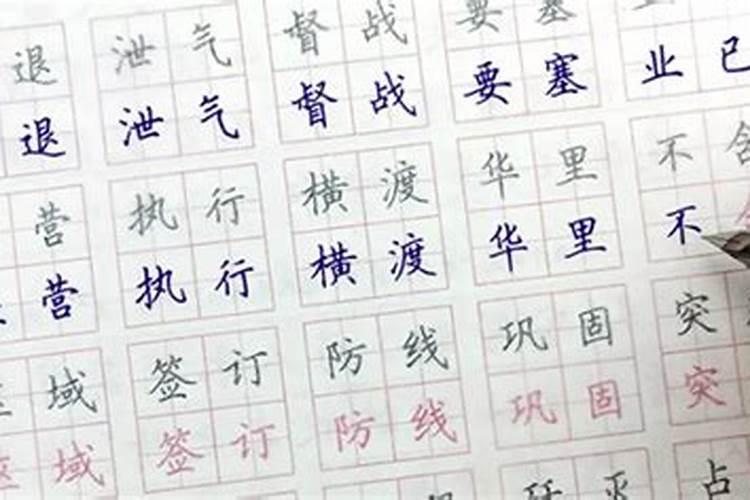 退 泄气 督战 要塞
退 泄气 督战 要塞 业已
营 执行 横渡 华里 不舍
营 执行 横渡 华里 不
域 签订 防线 巩固 突
区域 签订 防线 巩固 突
歼灭 占